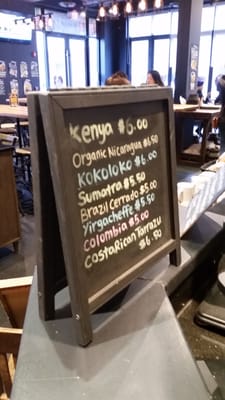 Kenya $6.00
Organic Nicaragua $6.50
Kokoloko $6.00
Sumatra $5.50
Brazil Cerrado $5.00
Yirgacheffe $5.50
Colombia $5.00
Costa Rican Tarrazu
$6.50